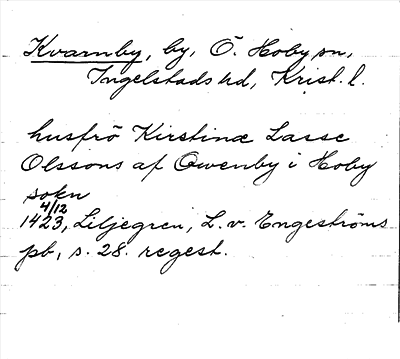 Kvarnby, by, Ö. Hoby sn,
Ingelstads hd, Krist. l.
husfrö Kirstinæ Lasse
Olssons af Qwenby i Hoby
sokn
4/12
1423, Liljegren, L. v. Engeströms
pb, s. 28. regest.